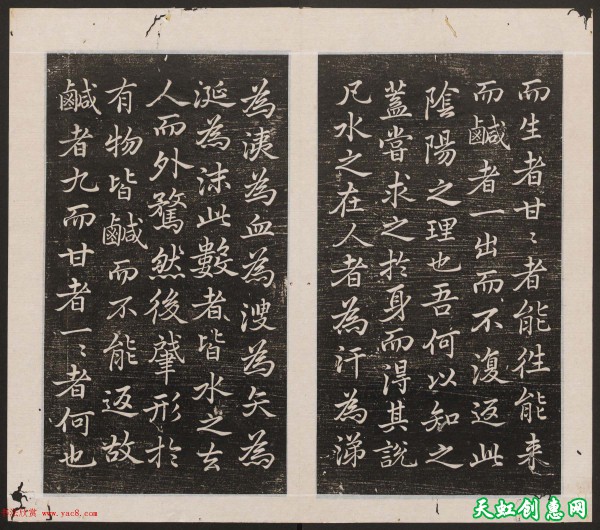 而生者甘〻者能往能来
而鹹者一出而不復返此
陰陽之理也吾何以知之
蓋嘗求之於身而得其說
凡水之在人者為汗為涕
為洟為血為溲為矢為
涎為沫此數者皆水之去
人而外騖然後肇形於
有物皆鹹而不能返故
鹹者九而甘者一〻者何也
书法欣赏 www.yac8.com
天虹创惠网